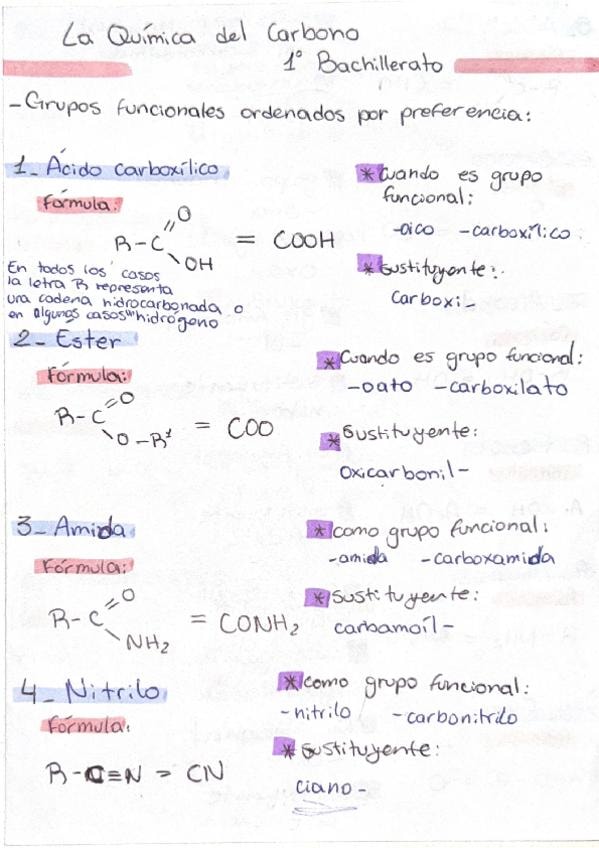 La Química del Carbono
1º Bachillerato
-Grupos funcionales ordenados por preferencia:
1- Ácido carboxílico
Fórmula:
R-C
O
OH
= COOH
* Cuando es grupo
funcional:
-oico -carboxílico
* Sustituyente:
Carboxi-
En todos los casos
la letra R representa
una cadena hidrocarbonada o
en algunos casos hidrógeno
2- Ester
Fórmula:
R-C
O
O-R¹
= COO
* Cuando es grupo funcional:
-oato -carboxilato
* Sustituyente:
Oxicarbonil-
3- Amida
Fórmula:
R-C
O
NH₂
= CONH₂
* como grupo funcional:
-amida -carboxamida
* Sustituyente:
carbamoíl-
4- Nitrilo
Fórmula:
R-C≡N = CN
* como grupo funcional:
-nitrilo -carbonitrilo
* Sustituyente:
ciano-